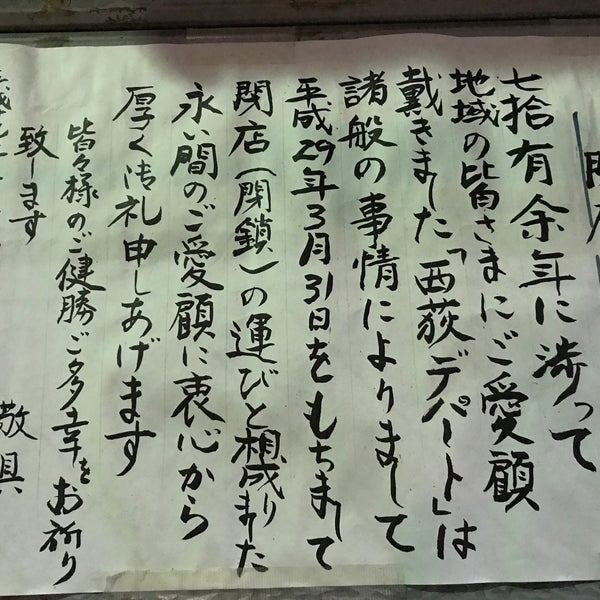 七拾有余年に渉って
地域の皆さまにご愛顧
戴きました「西荻デパート」は
諸般の事情によりまして
平成29年3月31日をもちまして
閉店(閉鎖)の運びと相成りました
永い間のご愛顧に衷心から
厚く御礼申しあげます
皆々様のご健勝ご多幸をお祈り
致します
敬具